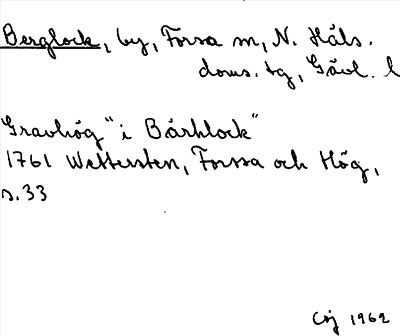 Berglock, by, Forsa sn, N. Häls.
doms. tg, Gävl. l
Gravhög "i Bärhlock"
1761 Wettersten, Forssa och Hög,
s. 33
1962